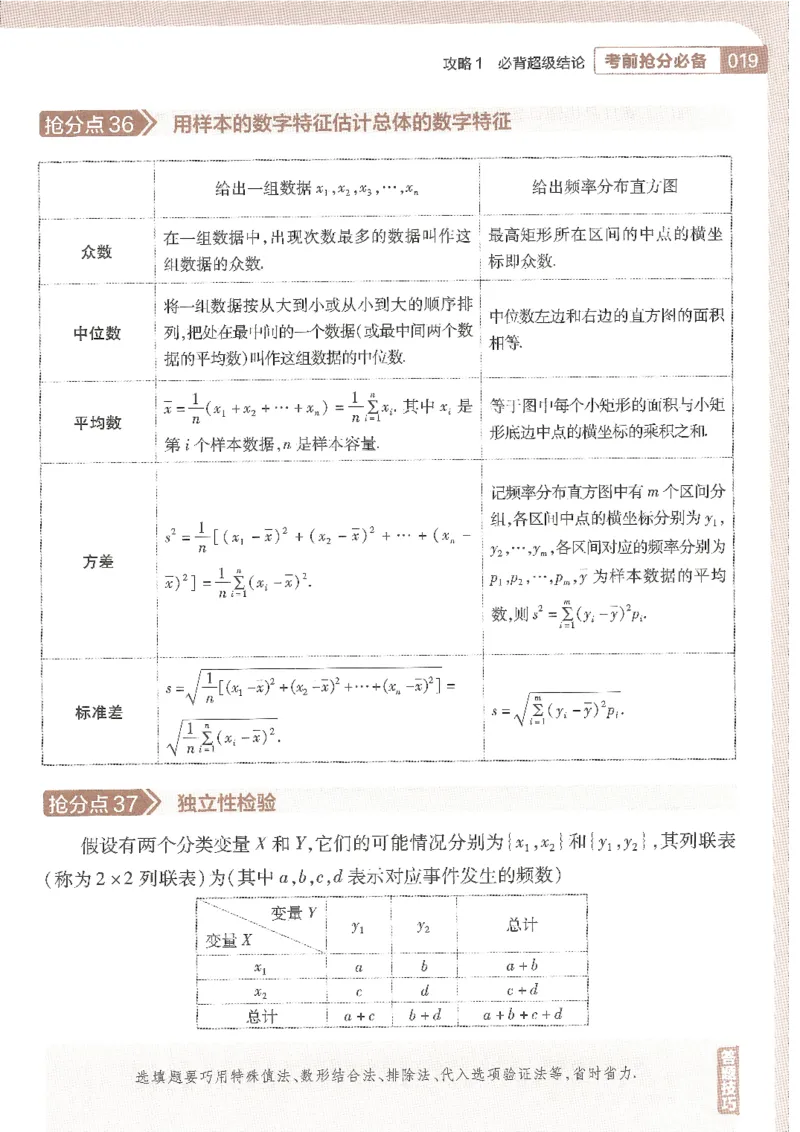 攻略1 必背超级结论 考前抢分必备 019
抢分点36 用样本的数字特征估计总体的数字特征
给出一组数据 x₁,x₂,x₃,…,xₙ 给出频率分布直方图
众数
在一组数据中,出现次数最多的数据叫作这
组数据的众数.
最高矩形所在区间的中点的横坐
标即众数.
中位数
将一组数据按从大到小或从小到大的顺序排
列,把处在最中间的一个数据(或最中间两个数
据的平均数)叫作这组数据的中位数.
中位数左边和右边的直方图的面积
相等.
平均数
x̄ = 1/n (x₁ + x₂ + … + xₙ) = 1/n ∑ⁿᵢ₌₁ xᵢ. 其中 xᵢ 是
第 i 个样本数据,n 是样本容量.
等于图中每个小矩形的面积与小矩
形底边中点的横坐标的乘积之和.
方差
s² = 1/n [(x₁ − x̄)² + (x₂ − x̄)² + … + (xₙ −
x̄)²] = 1/n ∑ⁿᵢ₌₁ (xᵢ − x̄)².
记频率分布直方图中有 m 个区间分
组,各区间中点的横坐标分别为 y₁,
y₂,…,yₘ,各区间对应的频率分别为
p₁,p₂,…,pₘ,ȳ 为样本数据的平均
数,则 s² = ∑ᵐᵢ₌₁ (yᵢ − ȳ)²pᵢ.
标准差
s = √(1/n [(x₁ − x̄)² + (x₂ − x̄)² + … + (xₙ − x̄)²]) =
√(1/n ∑ⁿᵢ₌₁ (xᵢ − x̄)²).
s = √(∑ᵐᵢ₌₁ (yᵢ − ȳ)²pᵢ).
抢分点37 独立性检验
假设有两个分类变量 X 和 Y,它们的可能情况分别为{x₁,x₂}和{y₁,y₂},其列联表
(称为 2×2 列联表)为(其中 a,b,c,d 表示对应事件发生的频数)
变量 Y
变量 X
y₁ y₂ 总计
x₁ a b a+b
x₂ c d c+d
总计 a+c b+d a+b+c+d
选填题要巧用特殊值法、数形结合法、排除法、代入选项验证法等,省时省力.
答题技巧